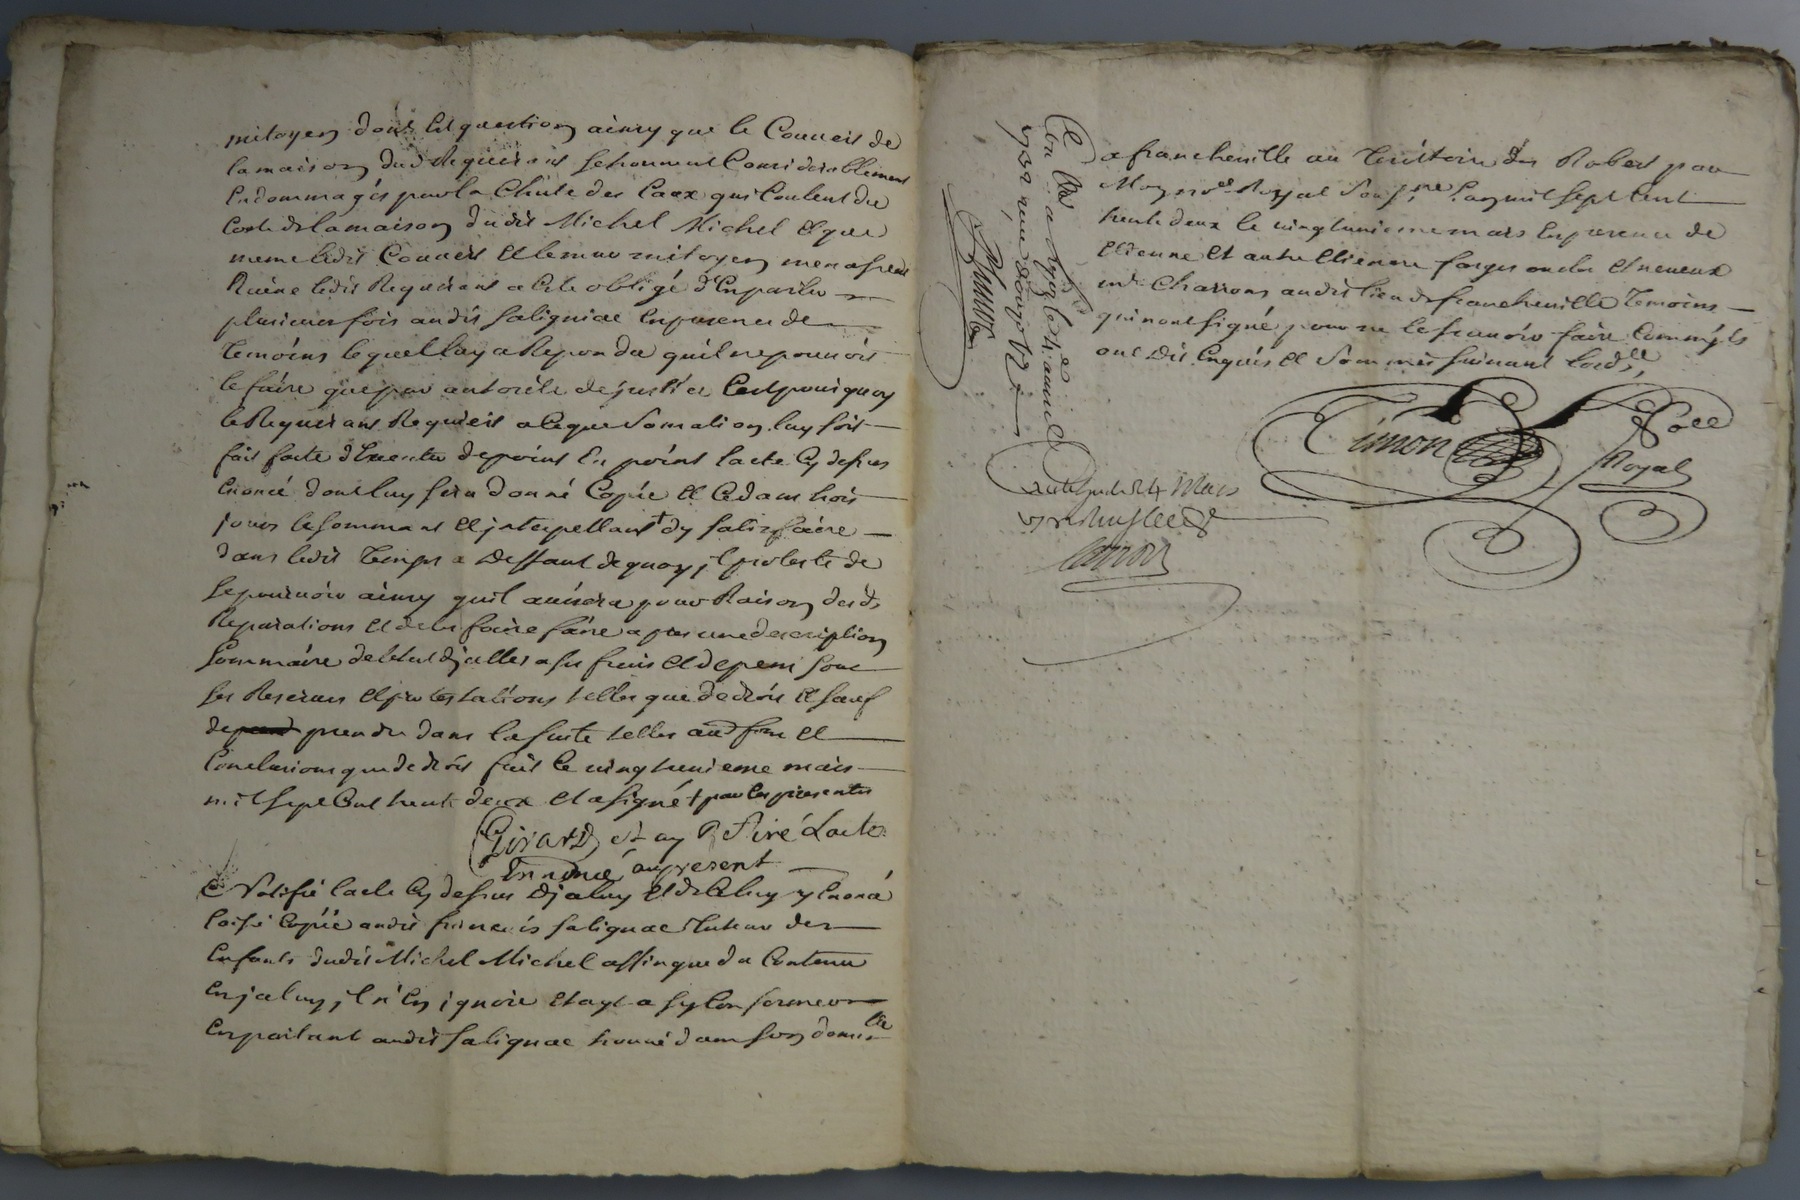 mitoyen dont est question ainsy que le Couvert de
la maison dud Requerant se trouvent Considerablement
Endommagés par la Chûte des Eaux qui Coulent du
Costé de la maison dudit Michel Michel et que
meme ledit Couvert et le mur mitoyen menassent
Ruine ledit Requerant a eté obligé d'En parler
plusieurs fois audit Salignac En presence de
Temoins lequel luy a Repondu quil ne pouvoit
le faire que par autorité de justice C'est pourquoy
le Requerant Requiert a ce que Somation luy soit
fait d'Executer de point En point l'acte Cy dessus
Enoncé dont luy sera donné Copie et Ce dans trois
jours le sommant et interpellant + dy satisfaire
dans ledit Temps a Deffaut de quoy il proteste de
se pourvoir ainsy quil avisera pour Raison desd
Reparations et de les faire faire apres une description
Sommaire de l'Etat d'jcelles a ses frais et depens sous
ses Reserves et protestations telles que de droit et sauf
de prendre dans la suite telles autres fins et
Conclusions que de droit fait le vingt unieme mars
mil sept Cent trente deux et a signé + par les presentes
Girard et ay Retiré Lacte
Ennoncé au present
Notifié l'acte Cy dessus D'jceluy et de Celuy y Enoncé
laissé Copie audit francois Salignac Tuteur des
Enfants dudit Michel Michel affin que du Contenu
En jceluy il n'En ignore et aye a sy Conformer
En parlant audit Salignac trouvé dans son domlle
a francheville au Territoire des Robert par
Moy nore Royal Soussigné L'an mil sept Cent
trente deux le vingt unieme mars En presence de
Etienne et autre Etienne farges oncle et neveux
md Charrons audit lieu de francheville Temoins
qui n'ont signé pour ne le scavoir faire Comme ils
ont Dit Enquis et Sommés suivant l'ordce
Timon
Noe
Royal
Conlle a le 24 avril
1732 reçu douze s
24 Mars